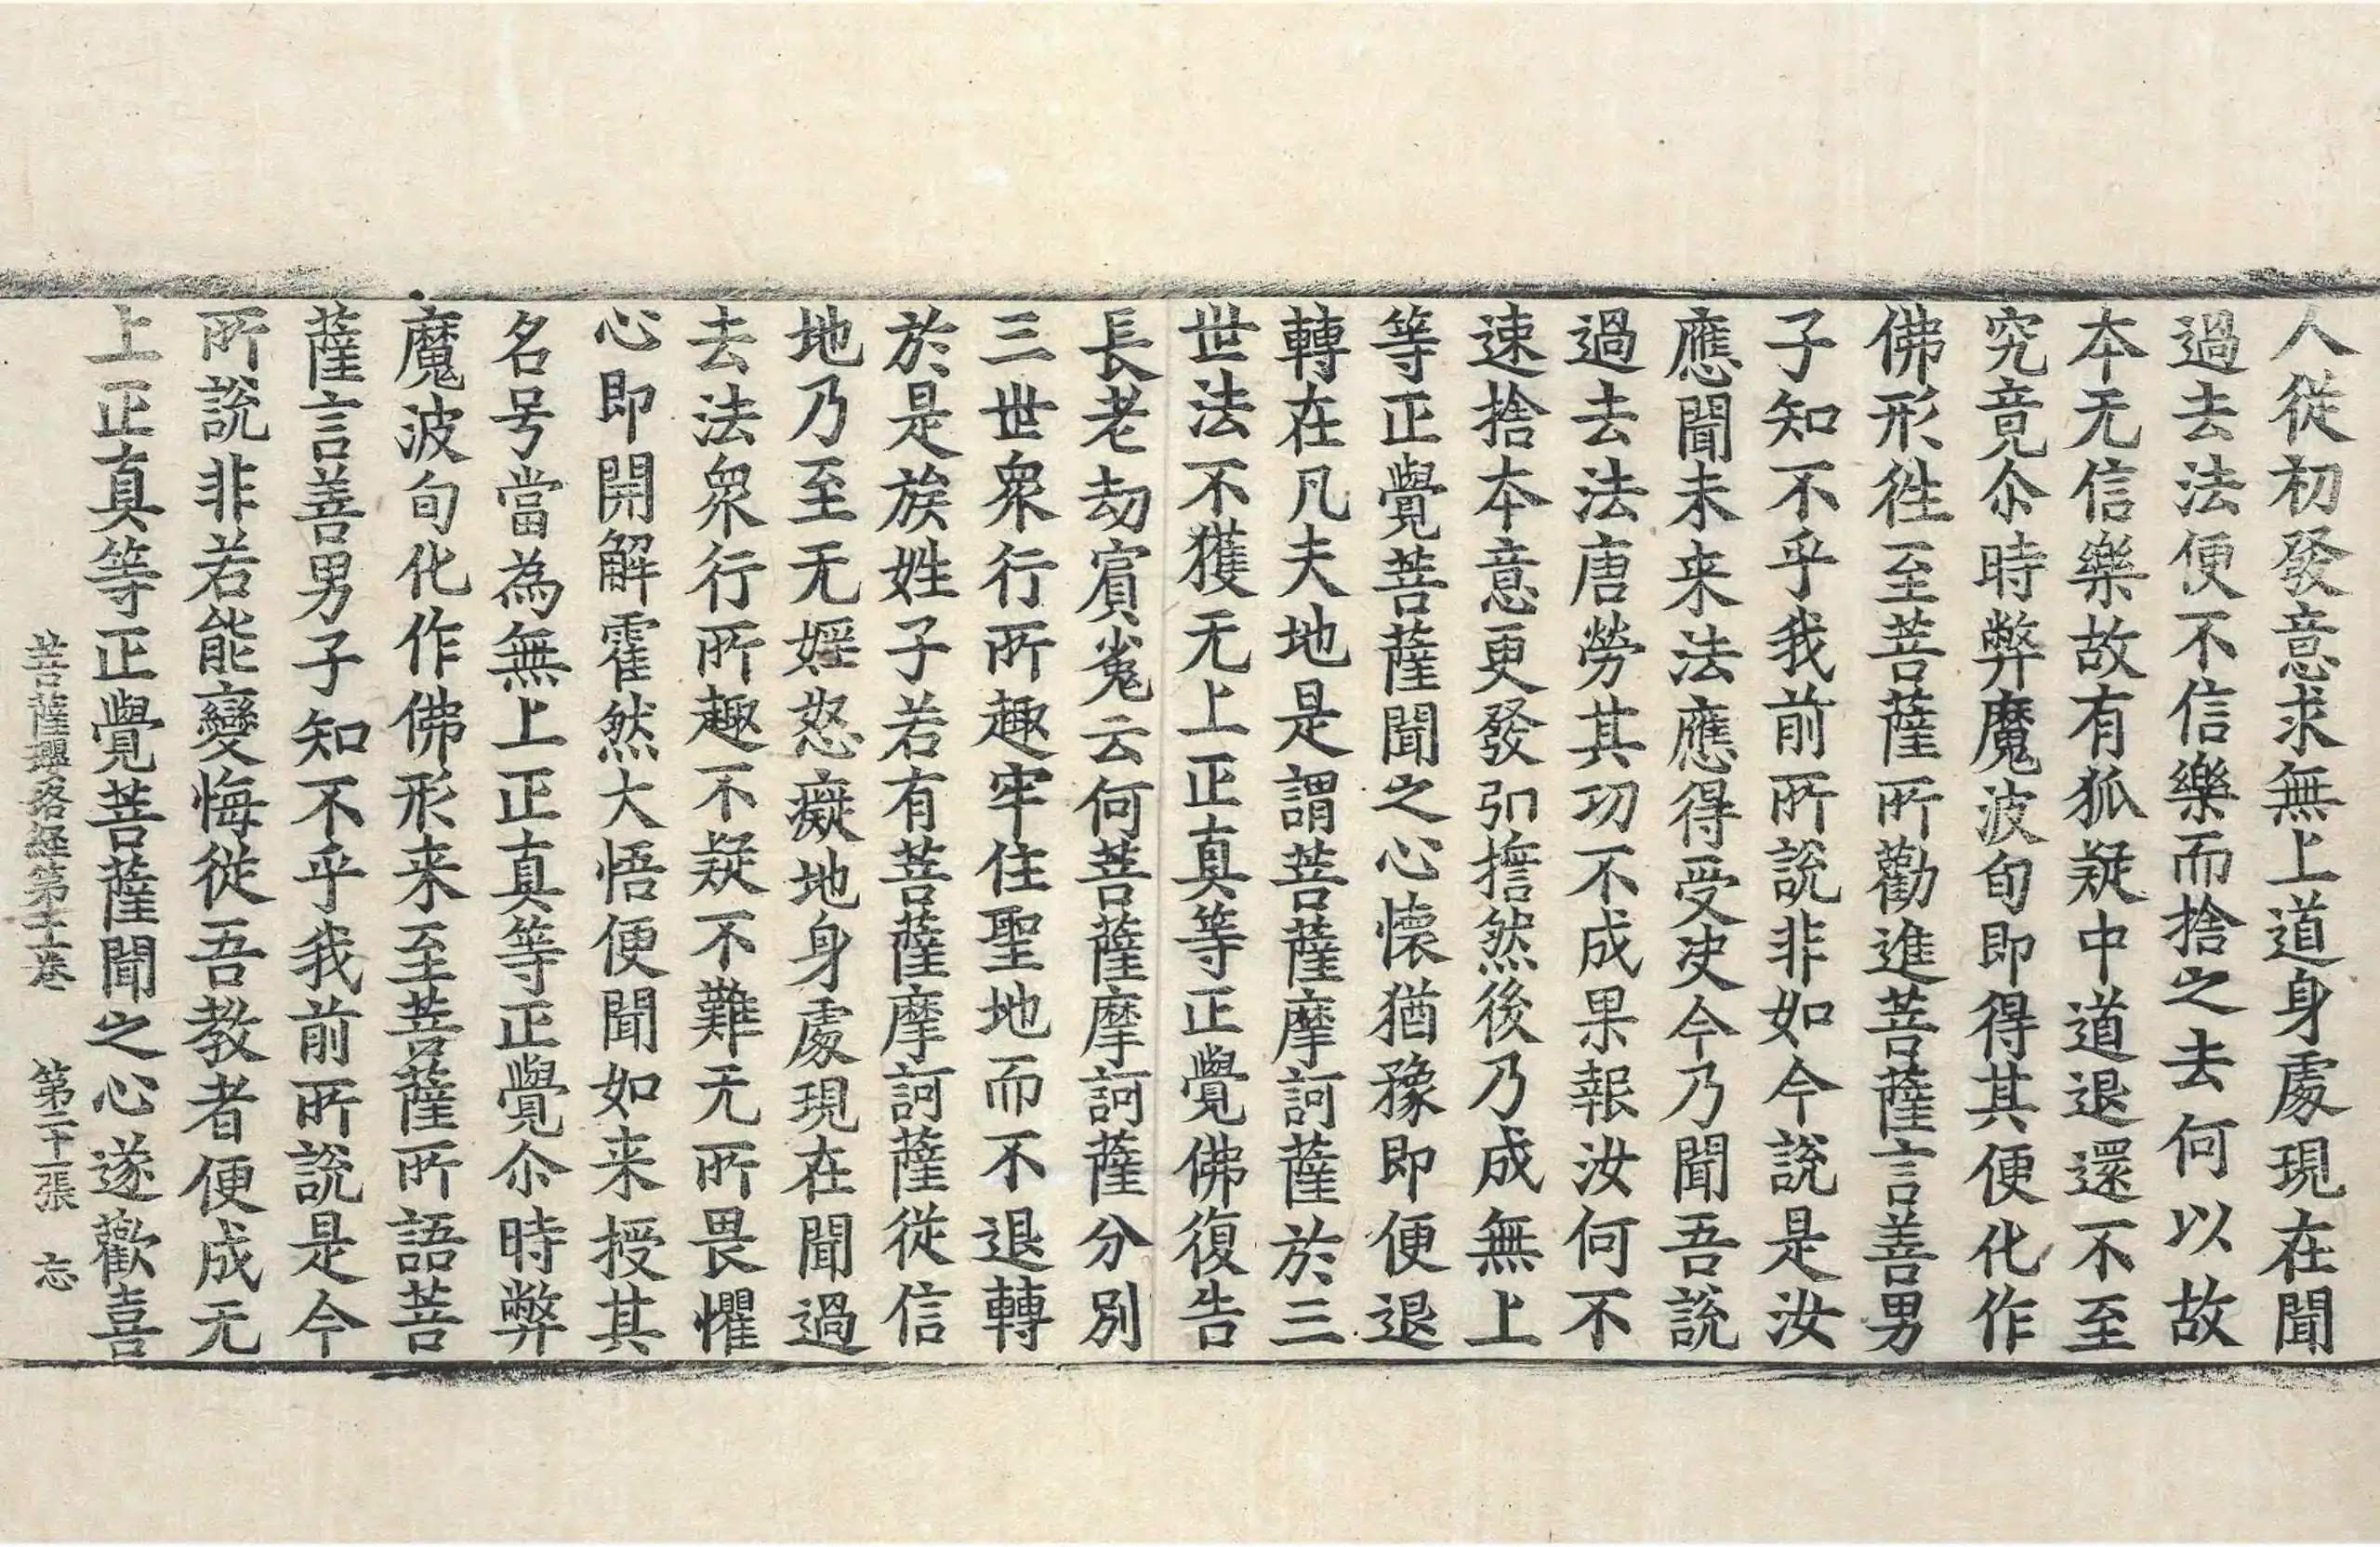 人從初發意求無上道身處現在聞
過去法便不信樂而捨之去何以故
本无信樂故有狐疑中道退還不至
究竟尒時弊魔波旬即得其便化作
佛形往至菩薩所勸進菩薩言善男
子知不乎我前所說非如今說是汝
應聞未来法應得受决今乃聞吾說
過去法唐勞其功不成果報汝何不
速捨本意更發弘擔然後乃成無上
等正覺菩薩聞之心懷猶豫即便退
轉在凡夫地是謂菩薩摩訶薩於三
世法不獲无上正真等正覺佛復告
長老劫賓㝹云何菩薩摩訶薩分別
三世衆行所趣牢住聖地而不退轉
於是族姓子若有菩薩摩訶薩從信
地乃至无婬怒癡地身處現在聞過
去法衆行所趣不疑不難无所畏懼
心即開解霍然大悟便聞如来授其
名号當為無上正真等正覺尒時弊
魔波旬化作佛形来至菩薩所語菩
薩言善男子知不乎我前所說是今
所說非若能變悔從吾教者便成无
上正真等正覺菩薩聞之心遂歡喜
菩薩瓔珞経第十二卷 第二十一張 忘